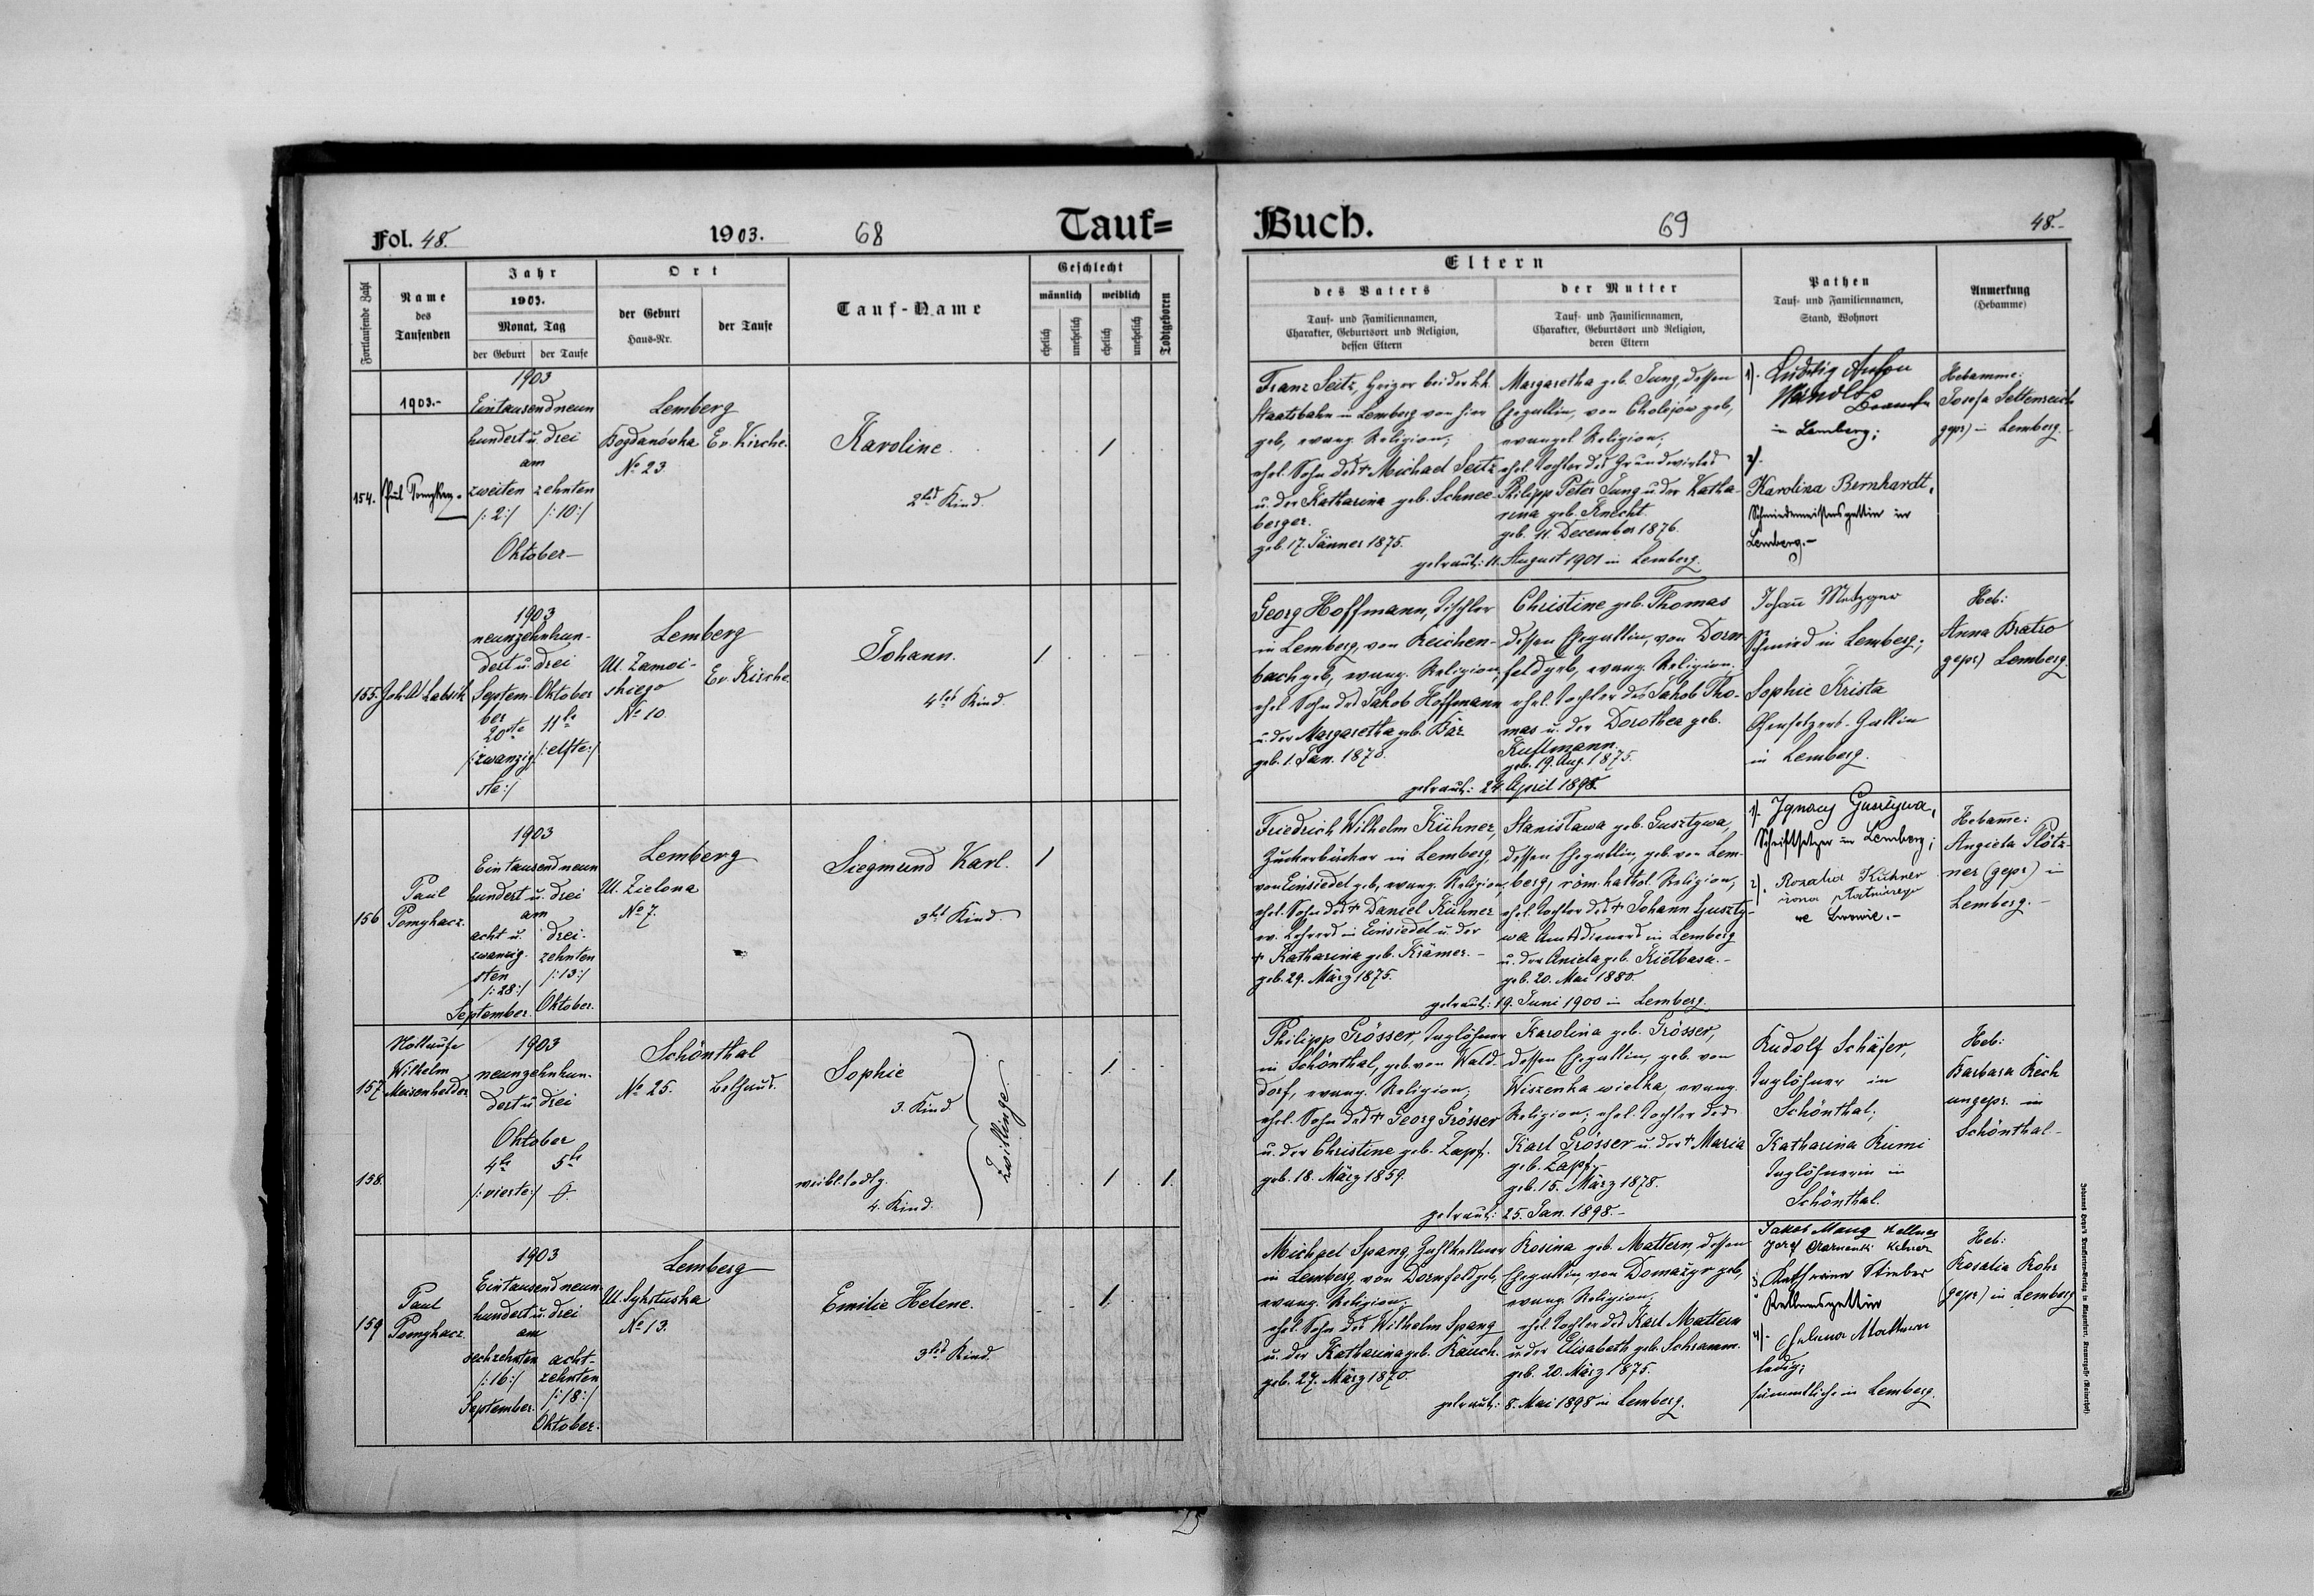 Fol. 48.
1903.
68
Tauf=
Fortlaufende Zahl
Name
des
Taufenden
Jahr
1903.
Monat, Tag
der Geburt
der Taufe
Ort
der Geburt
Haus-Nr.
der Taufe
Tauf-Name
Geschlecht
männlich
weiblich
ehelich
unehelich
ehelich
unehelich
Todtgeboren
1903.-
154.
1903
Eintausendneun
hundert u. drei
am
zweiten zehnten
/:2:/ /:10:/
Oktober
Lemberg
Bogdanówka Ev. Kirche.
No 23
Karoline.
2tes Kind.
155.
1903
neunzehnhun-
dert u. drei
Septem- Oktober
ber
20te 11te
/:zwanzig- /:elfte:/
ste:/
Lemberg
Ul. Zamoi-
skiego Ev. Kirche
No 10
Johann.
4tes Kind.
156
Paul
Pomykacz.
1903
Eintausendneun
hundert u. drei
am
acht u. drei-
zwanzig- zehnten
sten /:13:/
/:28:/
September. Oktober.
Lemberg
Ul. Zielona
No 7.
Siegmund Karl.
3tes Kind.
157
Nottaufe
Wilhelm
Meisenhelder
1903
neunzehnhun-
dert u. drei
Oktober
4te 5te
/:vierte:/
Schönthal
No 25. Bethaus.
Sophie
3. Kind.
Zwillinge.
158.
weibl. todtg.
4. Kind.
159
Paul
Pomykacz.
1903
Eintausendneun
hundert u. drei
am
sechzehnten acht-
/:16:/ zehnten
/:18:/
September. Oktober.
Lemberg
Ul. Sykstuska
No 13.
Emilie Helene.
3tes Kind.
Buch.
69
48.-
Eltern
des Vaters
Tauf- und Familiennamen,
Charakter, Geburtsort und Religion,
dessen Eltern
der Mutter
Tauf- und Familiennamen,
Charakter, Geburtsort und Religion,
deren Eltern
Pathen
Tauf- und Familiennamen,
Stand, Wohnort
Anmerkung
(Hebamme)
Franz Seitz, Heizer bei der k.k.
Staatsbahn in Lemberg von hier
geb., evang. Religion;
ehel. Sohn des + Michael Seitz
u. der Katharina geb. Schnee-
berger.
geb. 17. Jänner 1875.
Margaretha geb. Jung, dessen
Ehegattin, von Cholojów geb.,
evangel Religion;
ehel. Tochter des Grundwirtes
Philipp Peter Jung u. der Katha-
rina geb. Knecht.
geb. 11. December 1876.
getraut: 11. August 1901 in Lemberg.
1). Ludwig Anton
in Lemberg;
2).
Karolina Bernhardt,
Schmiedemeistersgattin in
Lemberg.-
Hebamme:
Josefa Seltenreich
(gepr) in Lemberg.
Georg Hoffmann, Tischler
in Lemberg, von Reichen-
bach geb., evang. Religion,
ehel. Sohn des Jakob Hoffmann
u. der Margaretha geb. Bär
geb. 1. Jan. 1870.
Christine geb. Thomas
dessen Ehegattin, von Dorn-
feld geb., evang. Religion.
ehel. Tochter des Jakob Tho-
mas u. der Dorothea geb.
geb. 19. Aug. 1875.
getraut: 24. April 1898.
Johann Metzger
Schmied in Lemberg;
Sophie Krista
Ofensetzers-Gattin
in Lemberg.
Heb:
Anna Bratro
gepr) Lemberg.
Friedrich Wilhelm Kühner,
Zuckerbäcker in Lemberg,
von Einsiedel geb., evang. Religion,
ehel. Sohn des + Daniel Kühner
ev. Lehrers in Einsiedel u. der
+ Katharina geb. Krämer.-
geb. 29. März 1875.
Stanisława geb. Gusztywa,
dessen Ehegattin, geb. von Lem-
berg, röm. kathol. Religion,
ehel. Tochter des + Johann Guszty-
wa Amtsdieners in Lemberg
u. der Aniela geb. Kiełbasa.-
geb. 20. Mai 1880.
getraut: 19. Juni 1900 in Lemberg.
1). Ignacy Gusztywa,
Schriftsetzer in Lemberg;
2). Rozalia Kühner
żona
we Lwowie.-
Hebamme:
Angiela Plötz-
ner (gepr) in
Lemberg.-
Philipp Grösser, Taglöhner
in Schönthal, geb. von Wald-
dorf, evang. Religion,
ehel. Sohn des + Georg Grösser
u. der Christine geb. Zapf.
geb. 18. März 1859.
Karolina geb. Grösser,
dessen Ehegattin, geb. von
Wiszenka wielka, evang.
Religion; ehel. Tochter des
Karl Grösser u. der + Maria
geb. Zapf.
geb. 15. März 1878.
getraut: 25. Jan. 1898.-
Rudolf Schäfer,
Taglöhner in
Schönthal;
Katharina Rumi
Taglöhnerin in
Schönthal.
Heb:
Barbara Rech
ungepr. in
Schönthal.-
Michael Spang, Zahlkellner
in Lemberg, von Dornfeld geb.,
evang. Religion.
ehel. Sohn des Wilhelm Spang
u. der Katharina geb. Rauch.
geb. 27. März 1870.
Rosina geb. Mattern, dessen
Ehegattin, von Domażyr geb.,
evang. Religion,
ehel. Tochter des Karl Mattern
u. der Elisabeth geb. Schramm.
geb. 20. März 1875.
getraut: 8. Mai 1898 in Lemberg.
Jakob Mang Kellner
Katharina Stieber
Kellnersgattin
4). Mattern
ledig;
sämmtliche in Lemberg.
Heb:
Rosalia Rohr
(gepr) in Lemberg